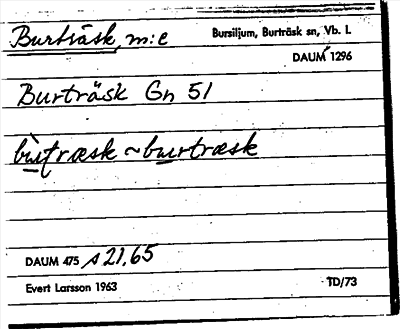 Burträsk, m:e Bursiljum, Burträsk sn, Vb. L
DAUM 1296
Burträsk Gn 51
bùtræsk ~ burtræsk
DAUM 475 s 21, 65
Evert Larsson 1963 TD/73